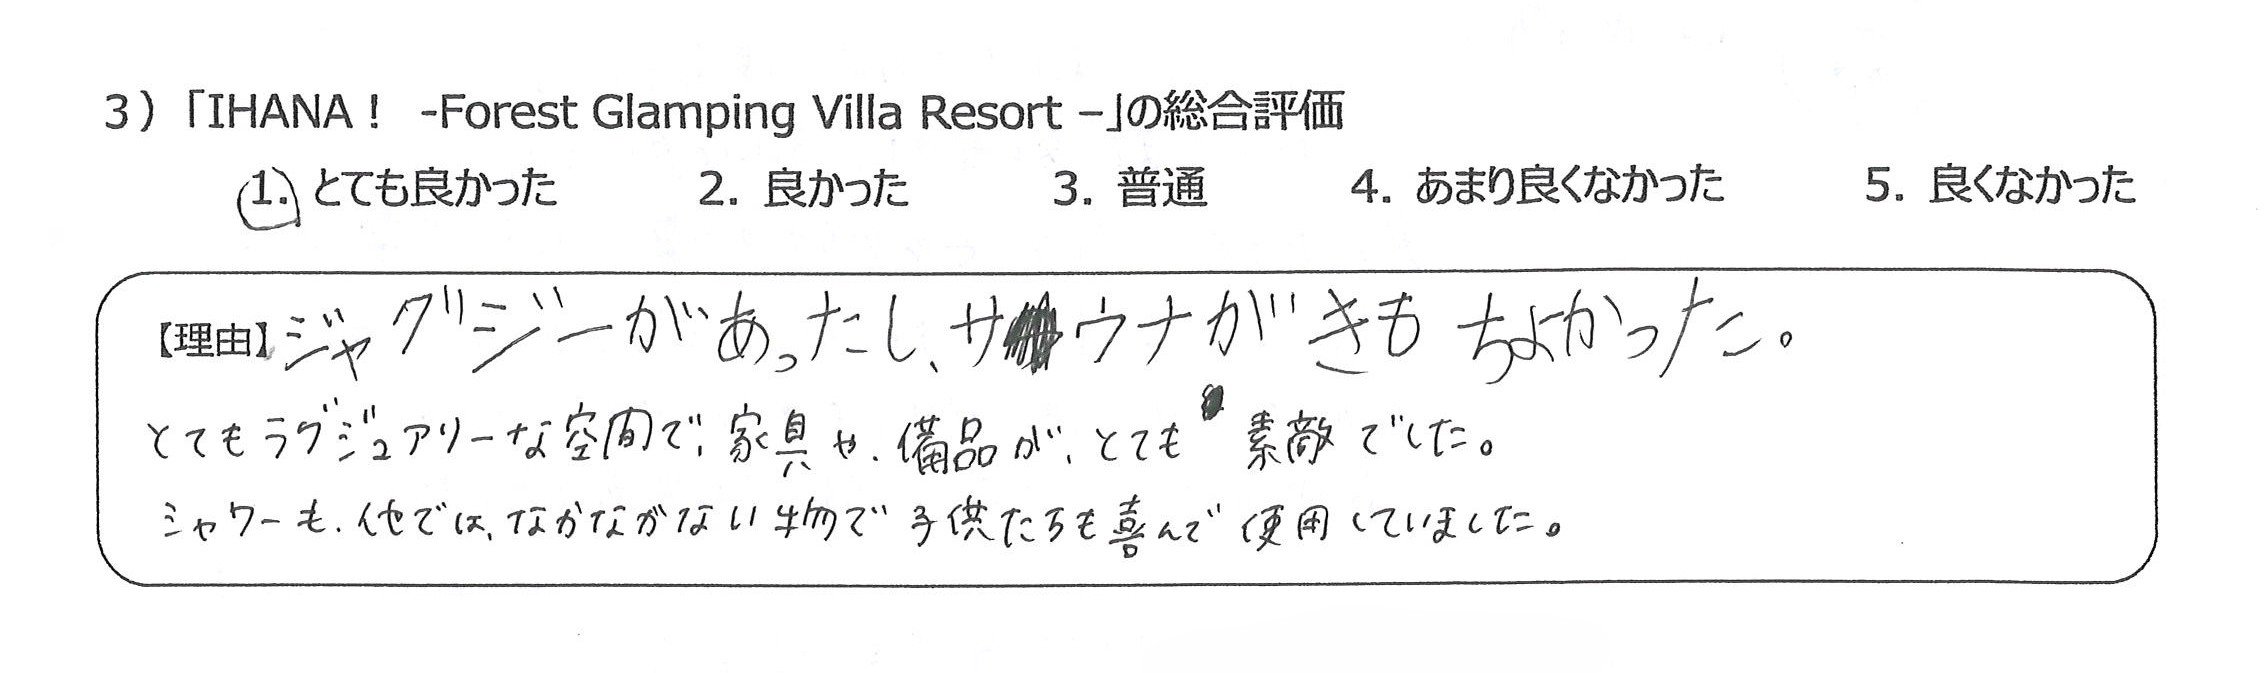 3）「IHANA！ -Forest Glamping Villa Resort –」の総合評価
1. とても良かった 2. 良かった 3. 普通 4. あまり良くなかった 5. 良くなかった
【理由】ジャグジーがあったし、サウナがきもちよかった。
とてもラグジュアリーな空間で、家具や、備品が、とても素敵でした。
シャワーも、他では、なかなかない物で子供たちも喜んで使用していました。